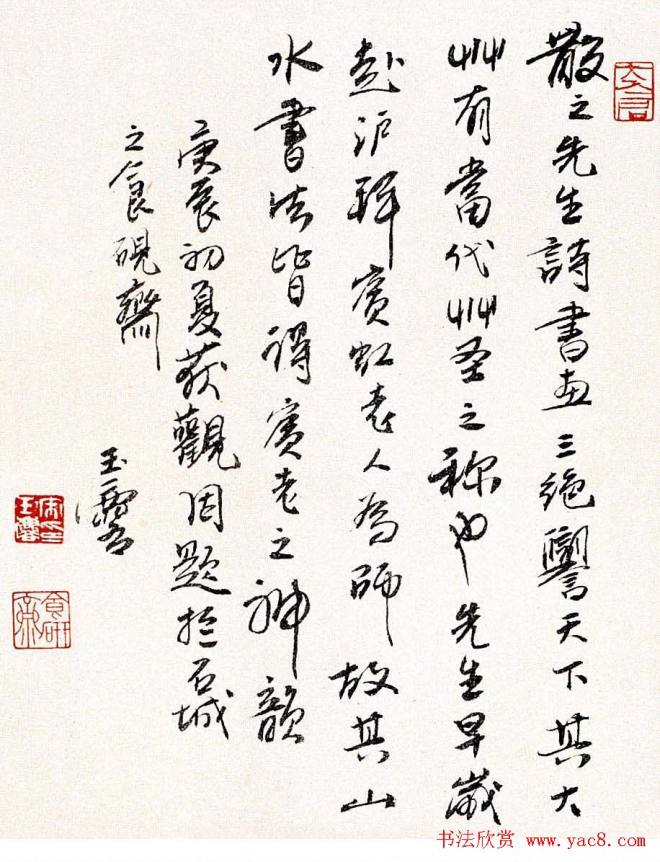 散之先生詩書画三绝譽天下其大
艸有當代艸圣之称也先生早歲
赴沪拜賓虹老人為師故其山
水書法皆得賓老之神韻
庚辰初夏获觀因題於石城
之食硯齋
玉麐
食研齋
书法欣赏 www.yac8.com